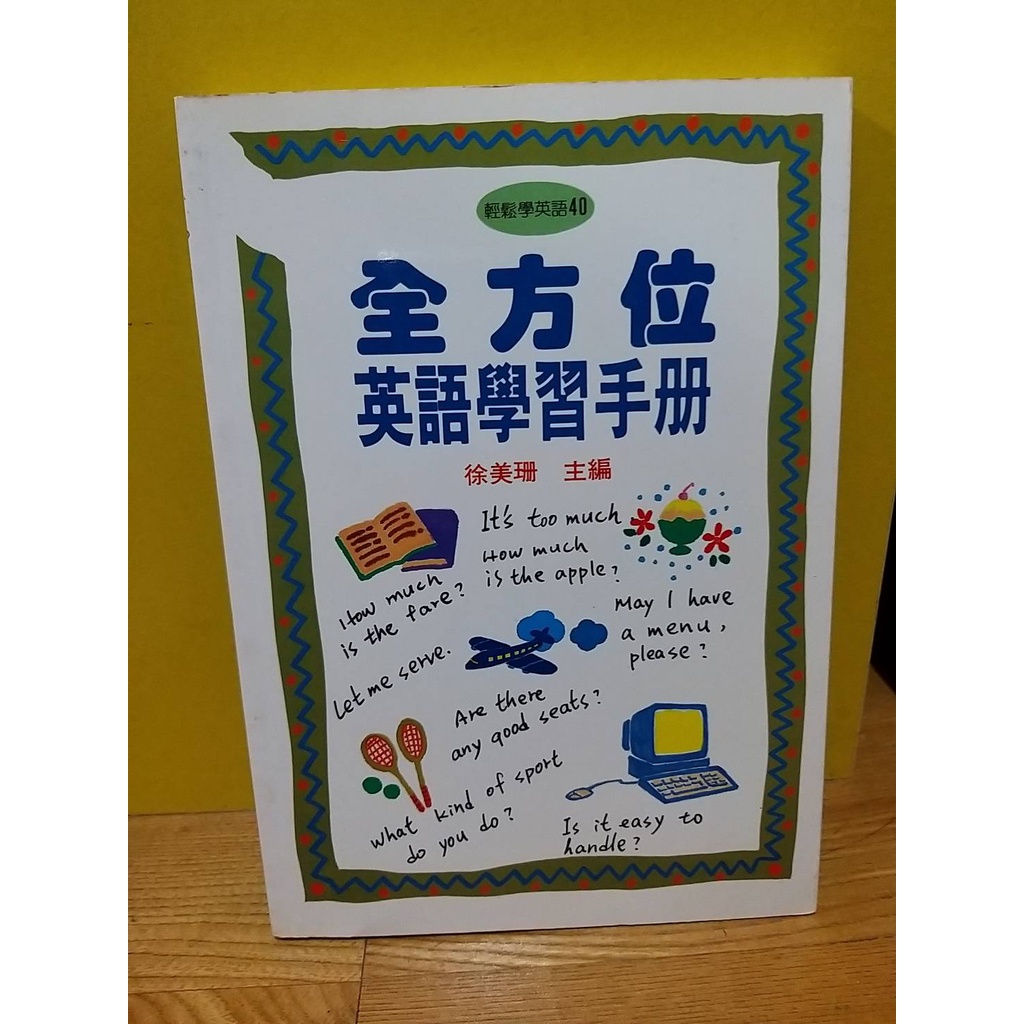 輕鬆學英語40
全方位
英語學習手册
徐美珊 主編
It's too much
How much
is the apple?
How much
is the fare?
May I have
a menu,
please?
Let me serve.
Are there
any good seats?
What kind of sport
do you do?
Is it easy to
handle?